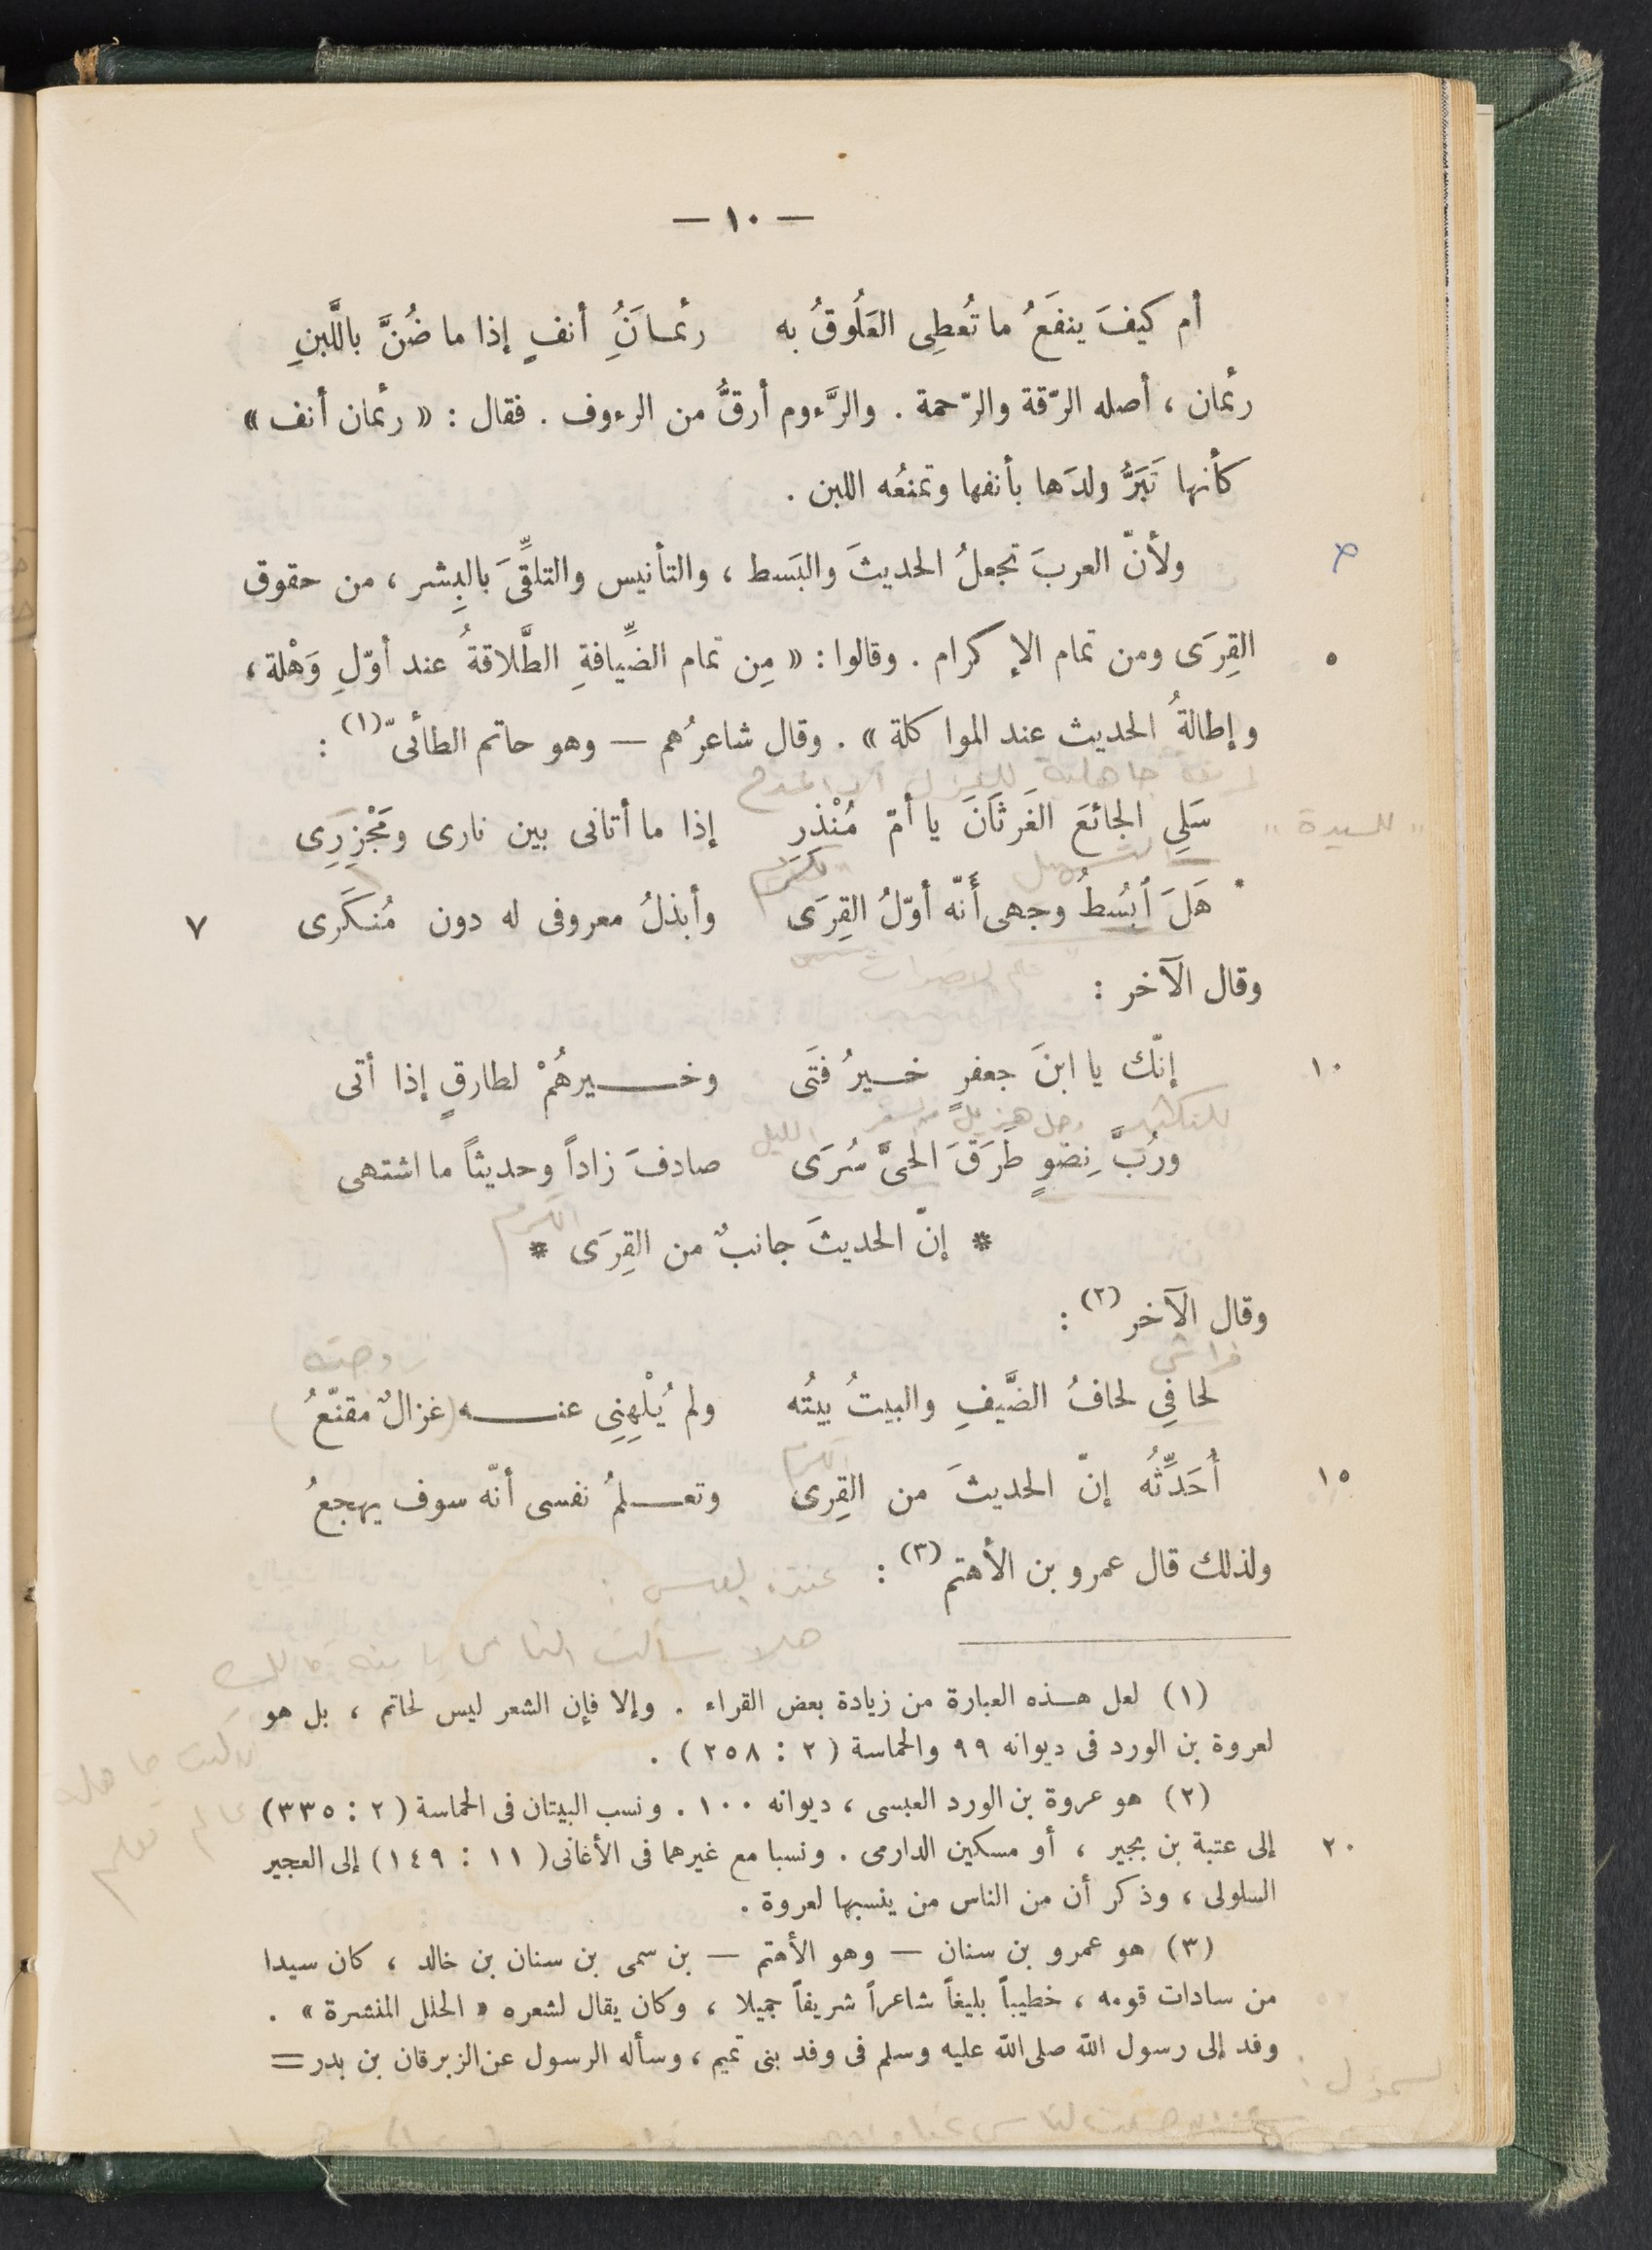 — ١٠ —
أم كيفَ ينفَعُ ما تُعطِى العَلُوقُ به رئمـانَُِ أنفٍ إذا ما ضُنَّ باللَّبنِ
رئمان ، أصله الرّقة والرّحمة . والرَّءوم أرقُّ من الرءوف . فقال : « رئمان أنف »
كأنها تَبَرُّ ولدَها بأنفها وتمنعُه اللبن .
ولأنّ العربَ تجعلُ الحديثَ والبَسط ، والتأنيس والتلقِّىَ بالبِشر ، من حقوق
القِرَى ومن تمام الإكرام . وقالوا : « مِن تمام الضِّيافةِ الطَّلاقةُ عند أوّلِ وَهْلة ، ٥
وإطالةُ الحديث عند المواكلة » . وقال شاعرُهم — وهو حاتم الطائىّ (١) :
سَلِى الجائعَ الغَرثَانَ يا أمّ مُنْذِرٍ إذا ما أتانى بين نارى ومَجْزِرِى
" للسيدة "
هَلَ اَبسُطُ وجهى أَنّه أوّلُ القِرَى وأبذلُ معروفى له دون مُنكَرى ٧
وقال الآخر :
إنّك يا ابنَ جعفرٍ خـيرُ فتَى وخـــيرهُمْ لطارقٍ إذا أتى ١٠
الليل
ورُبَّ نِضوٍ طَرَقَ الحىَّ سُرَى صادفَ زاداً وحديثاً ما اشتهى
الكرم
* إنّ الحديثَ جانبٌ من القِرَى *
وقال الآخر (٢) :
فراشي زوجته
لحافِى لحافُ الضَّيفِ والبيتُ بيتُه ولم يُلْهِنِى عنـــه (غزالٌ مقنّعُ)
الكرم
أُحَدِّثُه إنّ الحديثَ من القِرى وتعــلمُ نفسى أنّه سوف يهجعُ ١٥
ولذلك قال عمرو بن الأهتم (٣) :
(١) لعل هـذه العبارة من زيادة بعض القراء . وإلا فإن الشعر ليس لحاتم ، بل هو
لعروة بن الورد فى ديوانه ٩٩ والحماسة ( ٢ : ٢٥٨ ) .
(٢) هو عروة بن الورد العبسى ، ديوانه ١٠٠ . ونسب البيتان فى الحماسة ( ٢ : ٣٣٥ )
إلى عتبة بن بجير ، أو مسكين الدارمى . ونسبا مع غيرهما فى الأغانى ( ١١ : ١٤٩ ) إلى العجير ٢٠
السلولى ، وذكر أن من الناس من ينسبها لعروة .
(٣) هو عمرو بن سنان — وهو الأهتم — بن سمى بن سنان بن خالد ، كان سيدا
من سادات قومه ، خطيباً بليغاً شاعراً شريفاً جميلا ، وكان يقال لشعره « الحلل المنشرة » .
وفد إلى رسول الله صلى الله عليه وسلم فى وفد بنى تميم ، وسأله الرسول عن الزبرقان بن بدر =